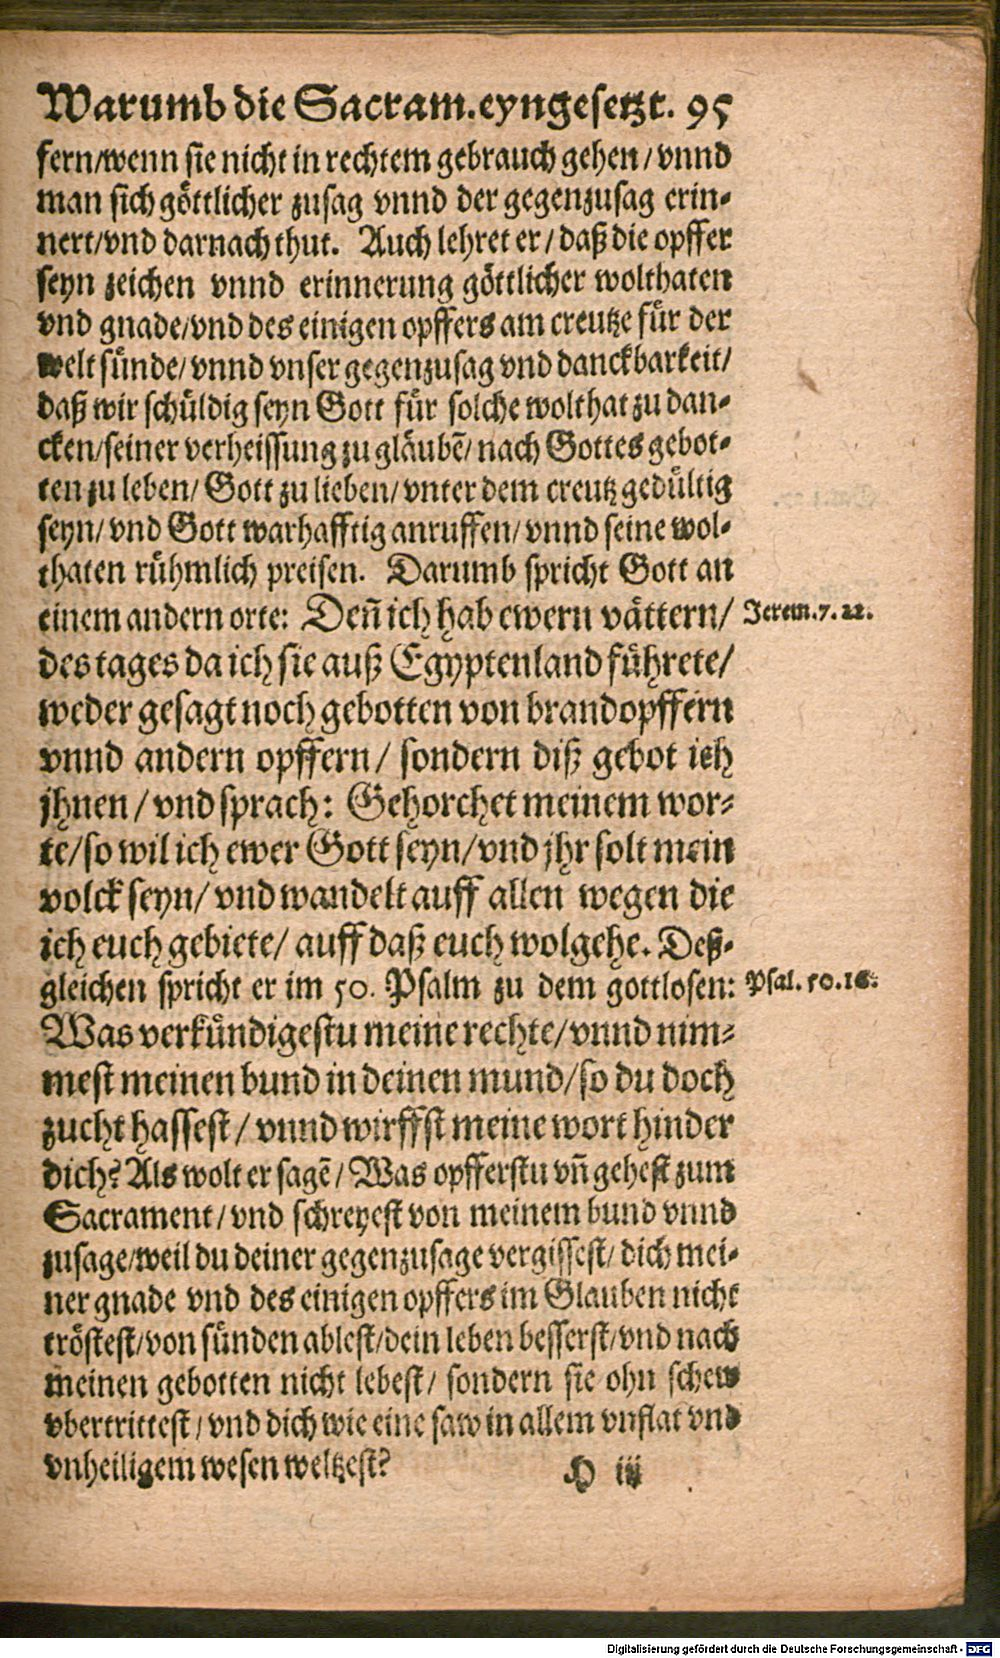 Warumb die Sacram. eyngesetzt. 95
fern/wenn sie nicht in rechtem gebrauch gehen/vnnd
man sich göttlicher zusag vnnd der gegenzusag erin-
nert/vnd darnach thut. Auch lehret er/daß die opffer
seyn zeichen vnnd erinnerung göttlicher wolthaten
vnd gnade/vnd des einigen opffers am creutze für der
welt sünde/vnnd vnser gegenzusag vnd danckbarkeit/
daß wir schüldig seyn Gott für solche wolthat zu dan-
cken/seiner verheissung zu gläubē/nach Gottes gebot-
ten zu leben/Gott zu lieben/vnter dem creutz gedültig
seyn/vnd Gott warhafftig anruffen/vnnd seine wol-
thaten rühmlich preisen. Darumb spricht Gott an
einem andern orte: Deñ ich hab ewern vättern/ Jerem.7.22.
des tages da ich sie auß Egyptenland führete/
weder gesagt noch gebotten von brandopffern
vnnd andern opffern/ sondern diß gebot ich
jhnen/vnd sprach: Gehorchet meinem wor-
te/so wil ich ewer Gott seyn/vnd jhr solt mein
volck seyn/vnd wandelt auff allen wegen die
ich euch gebiete/auff daß euch wolgehe. Deß-
gleichen spricht er im 50. Psalm zu dem gottlosen: Psal.50.16.
Was verkündigestu meine rechte/vnnd nim-
mest meinen bund in deinen mund/so du doch
zucht hassest/vnnd wirffst meine wort hinder
dich? Als wolt er sagē/Was opfferstu vñ gehest zum
Sacrament/vnd schreyest von meinem bund vnnd
zusage/weil du deiner gegenzusage vergissest/dich mei-
ner gnade vnd des einigen opffers im Glauben nicht
tröstest/von sünden ablest/dein leben besserst/vnd nach
meinen gebotten nicht lebest/ sondern sie ohn schew
vbertrittest/vnd dich wie eine saw in allem vnflat vnd
vnheiligem wesen weltzest?
H iij
Digitalisierung gefördert durch die Deutsche Forschungsgemeinschaft - DFG